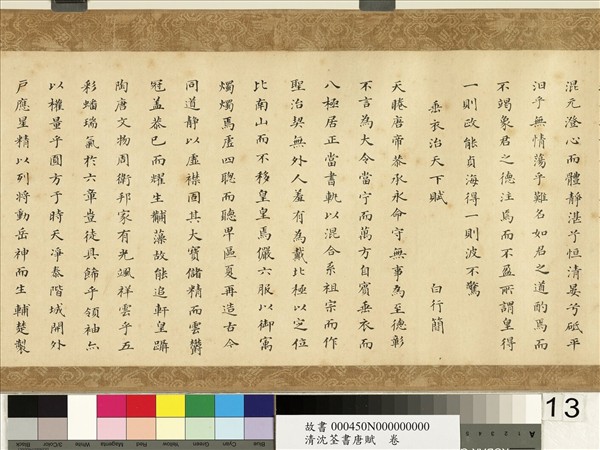 混元澄心而體靜湛乎恒清晏兮砥平
汨乎無情蕩乎難名如君之道酌焉而
不竭象君之德注焉而不盈所謂皇得
一則政能貞海得一則波不驚
垂衣治天下賦
白行簡
天睠唐帝恭承永命守無事為至德彰
不言為大令當宁而萬方自賓垂衣而
八極居正當書軌以混合系祖宗而作
聖治契無外人羞有為戴北極以定位
比南山而不移皇皇焉儼六服以御寓
燭燭焉虛四聰而聽卑區夏再造古今
同道靜以虛襟固其大寶儲精而雲鬱
冠蓋恭己而耀生黼藻故能追軒皇躡
陶唐文物周衛邦家有光颯祥雲乎五
彩蟠瑞氣於六章豈徒具飾乎領袖亦
以權量乎圓方于時天凈泰階域開外
戶應星精以列將動岳神而生輔楚製
13
故書 000450N000000000
清沈荃書唐賦 卷
Black
3/Color
White
Magenta
Red
Yellow
Green
Cyan
Blue
A